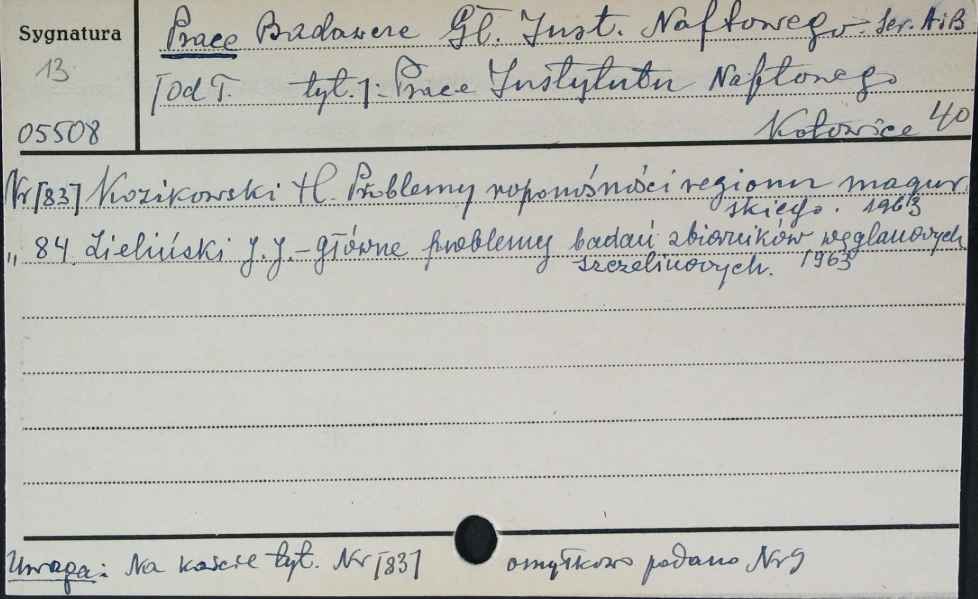 Sygnatura
13
05508
Prace Badawcze Gł. Inst. Naftowego - Ser. A i B
[Od T. tyt.]: Prace Instytutu Naftowego
Katowice 40
Nr [83] Kozikowski H. Problemy roponośności regionu magur
skiego. 1963
„ 84. Zieliński J. J. - Główne problemy badań zbiorników węglanowych
szczelinowych. 1963
Uwaga: Na karcie tyt. Nr [83] omyłkowo podano Nr 9